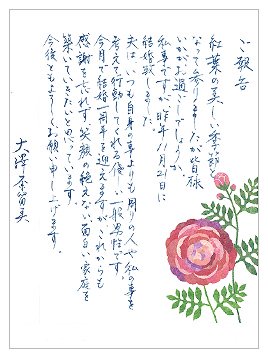 ご報告
紅葉の美しい季節と
なって参りましたが皆様
いかがお過ごしでしょうか。
私事ですが、昨年11月21日に
結婚致しました。
夫は、いつも自身の事よりも周りの人や私の事を
考えて行動してくれる優しい一般男性です。
今月で結婚一周年を迎えますが、これからも
感謝を忘れず、笑顔の絶えない面白い家庭を
築いていきたいと思っています。
今後ともよろしくお願い申し上げます。
大澤奈留美